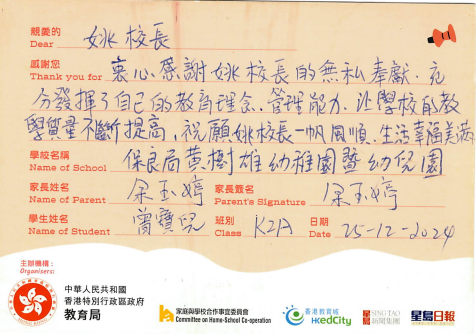 親愛的
Dear 姚校長
感謝您
Thank you for 衷心感謝姚校長的無私奉獻．充
分發揮了自己的教育理念、管理能力．让學校的教
學質量不斷提高，祝願姚校長一帆風順．生活幸福美滿
學校名稱
Name of School 保良局黄樹雄幼稚園暨幼兒園
家長姓名 家長簽名
Name of Parent 余玉婷 Parent's Signature 余玉婷
學生姓名 班別 日期
Name of Student 曾寶兒 Class K2A Date 25-12-2024
主辦機構：
Organisers:
中華人民共和國
香港特別行政區政府
教育局
家庭與學校合作事宜委員會
Committee on Home-School Co-operation
香港教育城
HKedCity
SINGTAO
新聞集團
星島日報